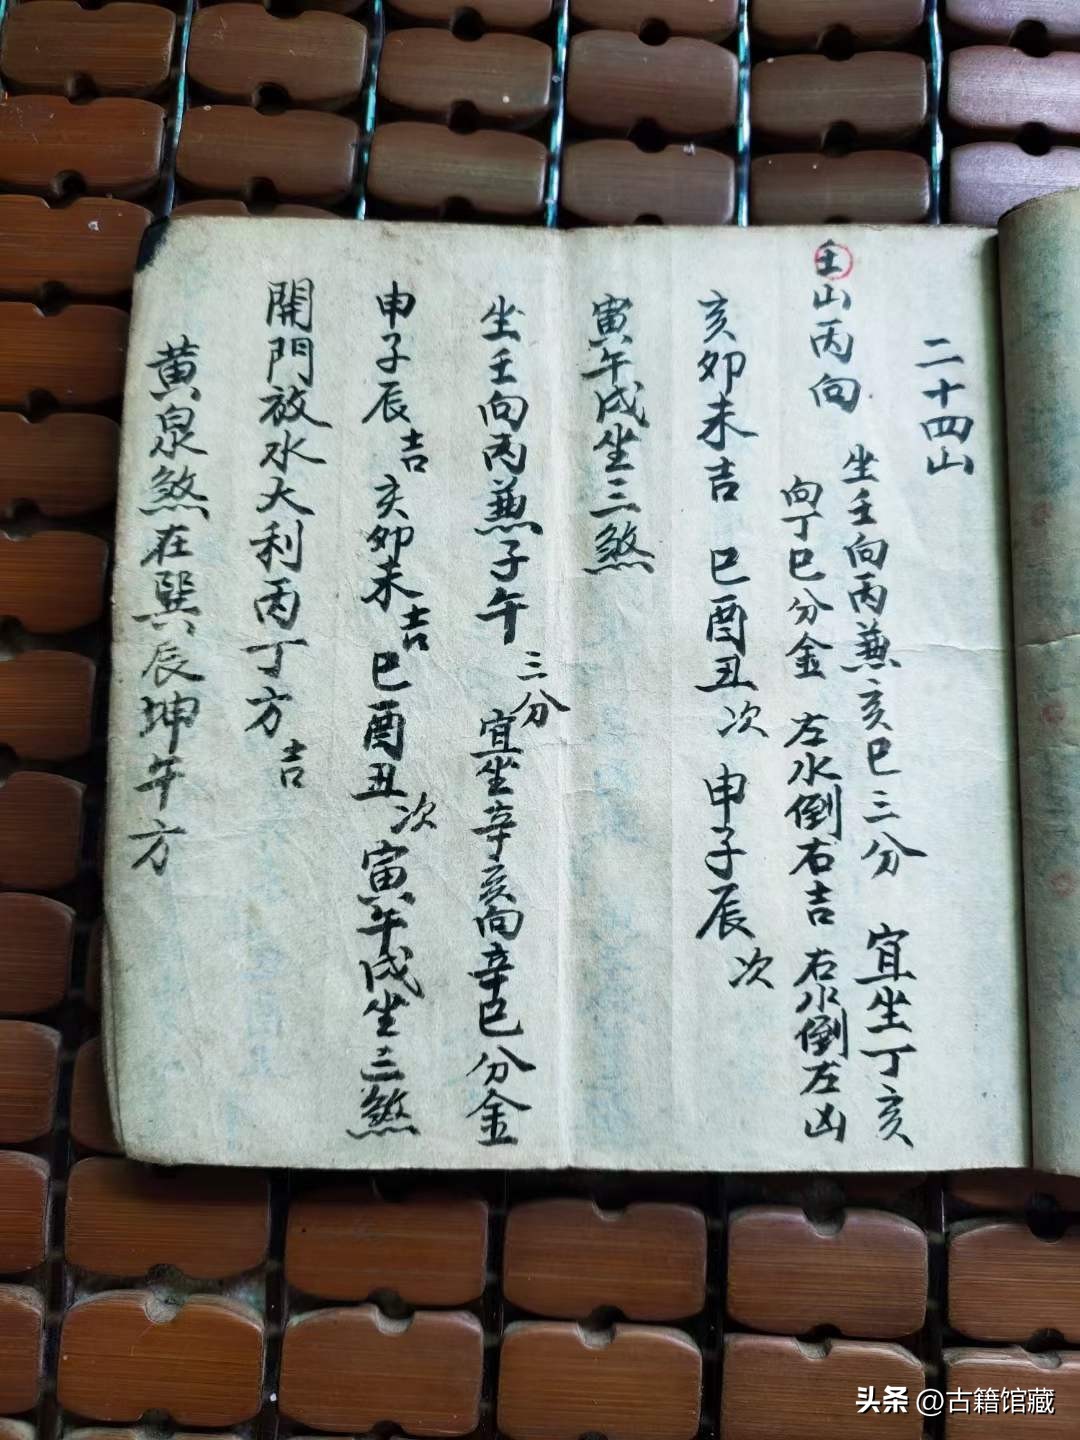 二十四山
壬山丙向 坐壬向丙兼亥巳三分 宜坐丁亥
向丁巳分金 左水倒右吉 右水倒左凶
亥卯未吉 巳酉丑次 申子辰次
寅午戌坐三煞
坐壬向丙兼子午三分 宜坐辛亥向辛巳分金
申子辰吉 亥卯未吉 巳酉丑次 寅午戌坐三煞
開門放水大利丙丁方吉
黄泉煞在巽辰坤午方
头条 @古籍馆藏